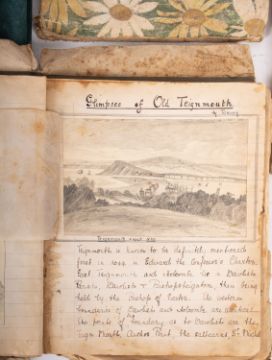 Glimpses of Old Teignmouth
by
Teignmouth
Teignmouth is known to be definitely mentioned
first in 1044 in Edward the Confessor's Charter.
East Teignmouth and Holcombe lie in Dawlish
Dawlish & Bishopsteignton then being
held by the Bishop of Exeter. The western
boundaries of Dawlish and Holcombe are
The points of boundary as to Dawlish are the
Teign Mouth, that the